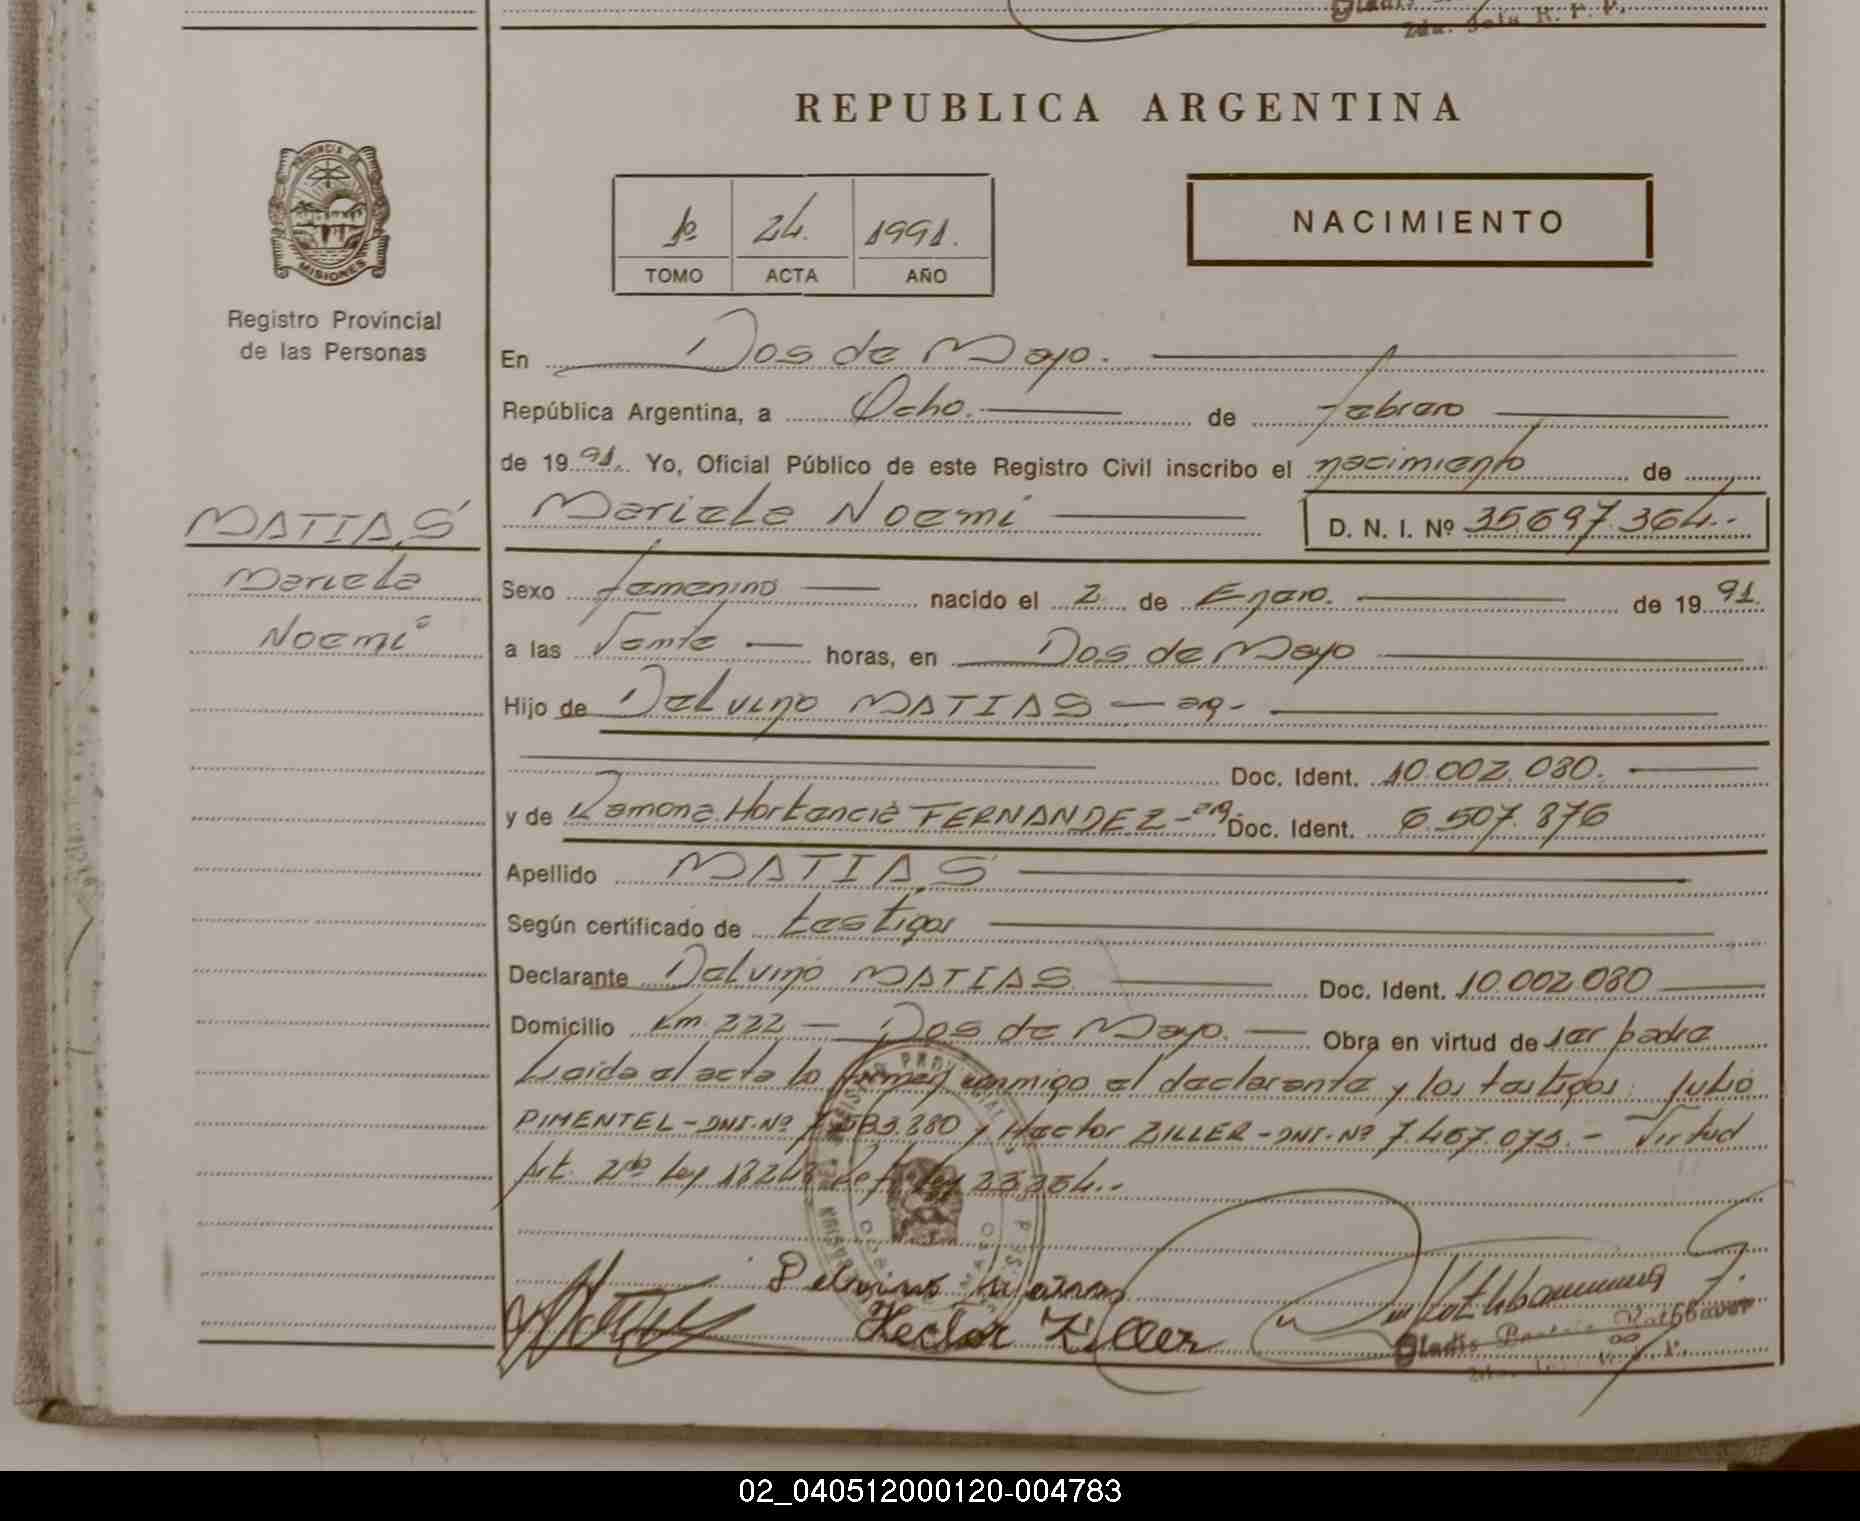 REPUBLICA ARGENTINA
PROVINCIA DE
MISIONES
Registro Provincial
de las Personas
1º 24. 1991.
TOMO ACTA AÑO
NACIMIENTO
En Dos de Mayo.
República Argentina, a Ocho. de febrero
de 19 91. Yo, Oficial Público de este Registro Civil inscribo el nacimiento de
MATIAS
Mariela Noemi D. N. I. Nº 35.697.364.
Mariela
Noemi
Sexo femenino nacido el 2 de Enero. de 19 91.
a las Veinte horas, en Dos de Mayo
Hijo de Delvino MATIAS - arg-
Doc. Ident. 10.002.080.
y de Ramona Hortencia FERNANDEZ - arg. Doc. Ident. 6.507.876
Apellido MATIAS
Según certificado de testigos
Declarante Delvino MATIAS Doc. Ident. 10.002.080
Domicilio Km. 222 - Dos de Mayo. Obra en virtud de ser padre
Leida el acta la firman conmigo el declarante y los testigos: Julio
PIMENTEL - DNI. Nº y Hector ZILLER - DNI. Nº 7.467.073. - Virtud
Art. 2do Ley 18248 Ley 23.264..
Delvino matias
Hector Ziller
Gladis
02_040512000120-004783